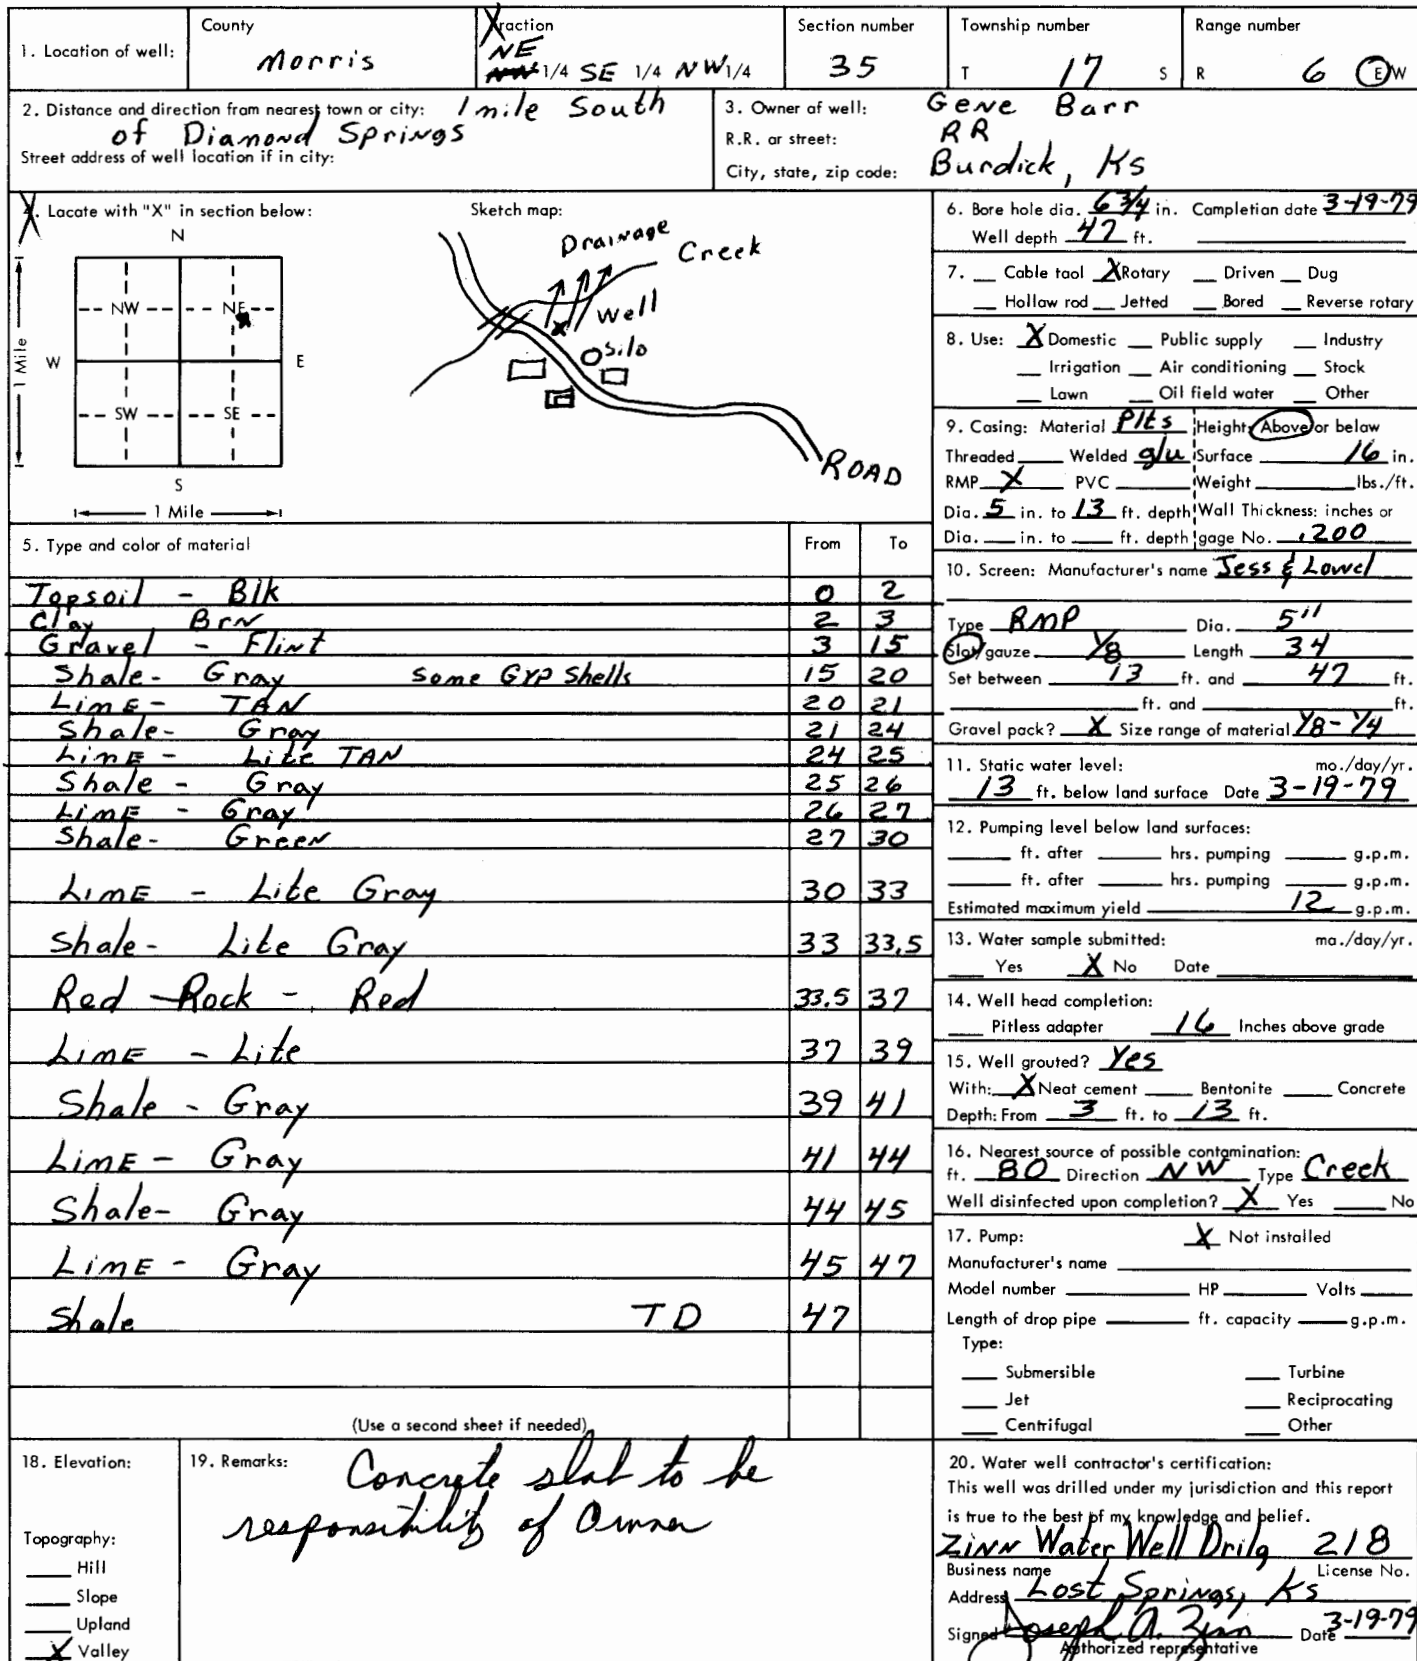 1. Location of well:
County
Morris
Fraction
NE
NW 1/4 SE 1/4 NW 1/4
Section number
35
Township number
T 17 S
Range number
R 6 E W
2. Distance and direction from nearest town or city: 1 mile South
of Diamond Springs
Street address of well location if in city:
3. Owner of well: Gene Barr
R.R. or street: RR
City, state, zip code: Burdick, Ks
4. Locate with "X" in section below:
N
NW NE
W E
SW SE
S
1 Mile
1 Mile
Sketch map:
Drainage
Creek
Well
Silo
ROAD
5. Type and color of material From To
Topsoil - Blk 0 2
Clay Brn 2 3
Gravel - Flint 3 15
Shale - Gray some GYP Shells 15 20
Lime - TAN 20 21
Shale - Gray 21 24
Lime - Lite TAN 24 25
Shale - Gray 25 26
Lime - Gray 26 27
Shale - Green 27 30
Lime - Lite Gray 30 33
Shale - Lite Gray 33 33.5
Red - Rock - Red 33.5 37
Lime - Lite 37 39
Shale - Gray 39 41
Lime - Gray 41 44
Shale - Gray 44 45
Lime - Gray 45 47
Shale TD 47
(Use a second sheet if needed)
6. Bore hole dia. 6 3/4 in. Completion date 3-19-79
Well depth 47 ft.
7. Cable tool X Rotary Driven Dug
Hollow rod Jetted Bored Reverse rotary
8. Use: X Domestic Public supply Industry
Irrigation Air conditioning Stock
Lawn Oil field water Other
9. Casing: Material Plts Height: Above or below
Threaded Welded glu Surface 16 in.
RMP X PVC Weight lbs./ft.
Dia. 5 in. to 13 ft. depth Wall Thickness: inches or
Dia. in. to ft. depth gage No. .200
10. Screen: Manufacturer's name Jess & Lowel
Type RMP Dia. 5"
Slot/gauze 1/8 Length 34
Set between 13 ft. and 47 ft.
ft. and ft.
Gravel pack? X Size range of material 1/8-1/4
11. Static water level: mo./day/yr.
13 ft. below land surface Date 3-19-79
12. Pumping level below land surfaces:
ft. after hrs. pumping g.p.m.
ft. after hrs. pumping g.p.m.
Estimated maximum yield 12 g.p.m.
13. Water sample submitted: mo./day/yr.
Yes X No Date
14. Well head completion:
Pitless adapter 16 Inches above grade
15. Well grouted? Yes
With: X Neat cement Bentonite Concrete
Depth: From 3 ft. to 13 ft.
16. Nearest source of possible contamination:
ft. 80 Direction NW Type Creek
Well disinfected upon completion? X Yes No
17. Pump: X Not installed
Manufacturer's name
Model number HP Volts
Length of drop pipe ft. capacity g.p.m.
Type:
Submersible Turbine
Jet Reciprocating
Centrifugal Other
18. Elevation:
Topography:
Hill
Slope
Upland
X Valley
19. Remarks: Concrete slab to be
responsibility of Owner
20. Water well contractor's certification:
This well was drilled under my jurisdiction and this report
is true to the best of my knowledge and belief.
Zinn Water Well Drilg 218
Business name License No.
Address Lost Springs, Ks
Signed Joseph A. Zinn Date 3-19-79
Authorized representative